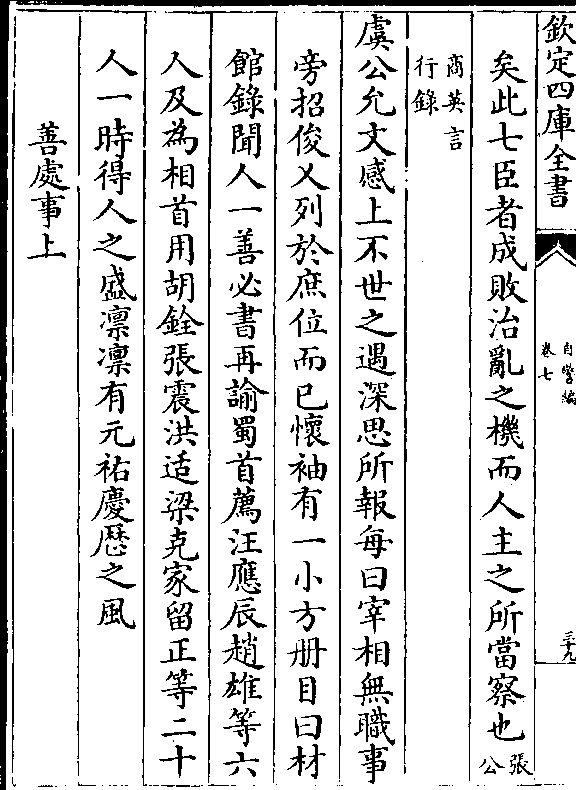 欽定四庫全書
自警編
卷七
三十九
矣此七臣者成敗治亂之機而人主之所當察也張公
商英言行錄
虞公允文感上不世之遇深思所報每曰宰相無職事
旁招俊乂列於庶位而已懷袖有一小方册目曰材
館錄聞人一善必書再諭蜀首薦汪應辰趙雄等六
人及為相首用胡銓張震洪适梁克家留正等二十
人一時得人之盛凛凛有元祐慶厯之風
善處事上